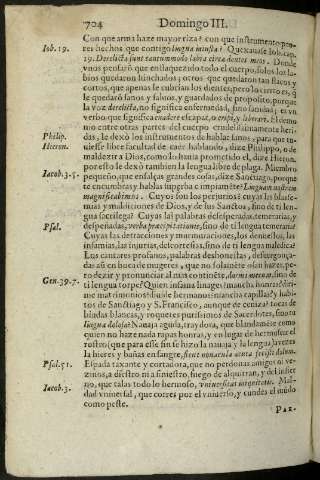 704 Domingo III.
Con que arma haze mayor riza? con que instrumento peo-
Iob. 19. res hechos, que contigo lengua iniusta? Quexauase Iob. cap.
19. Derelicta sunt tantummodo labia circa dentes meos. Donde
vnos pensarõ, que enllaquezido todo el cuerpo, solos los la-
bios quedaron hinchados; otros que quedaron tan flacos y
cortos, que apenas le cubrian los dientes, pero lo cierto es, q̃
le quedarõ sanos y fabios, y guardados de proposito, porque
la voz derelicta, no significa enfermedad, sino sanidad; es vn
verbo que significa euadere escapar, o eripi, y librar. El demo-
nio entre otras partes del cuerpo crudelissimamente heri-
Philip. das, le dexò los instrumentos de hablar sanos, para que tu-
Hieron. uiesse libre facultad de caer hablando, dize Philippo, o de
maldezir a Dios, como lo auia prometido el, dize Hieron.
por esto le dexò tambien la lengua libre de plaga. Miembro
Iacob. 3. 5. pequeño, que ensalças grandes cosas, dize Sanctiago, porque
te encumbras y hablas superba e impiamête? Linguam nostram
magnificabimus. Cuyos son los perjurios? cuyas las blasfe-
mias y maldiciones de Dios, y de sus Sanctos, sino de ti len-
gua sacrilega? Cuyas las palabras desesperadas, temerarias, y
Psal. despeñadas, verba præcipitationis, sino de ti lengua temeraria?
Cuyas las detracciones y murmuraciones, los denuestos, las
infamias, las injurias, descortesias, sino de ti lengua maledica?
Los cantares profanos, palabras deshonestas, desuergonça-
das assi en boca de mugeres, que no solamẽte osan hazer, pe-
Gen. 39. 7. ro dezir y pronunciar al mas continẽte, dormi mecum, sino de
ti lengua torpe? Quien infama linages? mancha honras? diri-
me matrimonios? hunde hermanos? mancha capillas? y habi-
tos de Sanctiago y S. Francisco, aunque de ceniza? tocas de
biudas blancas, y roquetes purissimos de Sacerdotes, sino tu
lengua dolosa? Nauaja aguda, tray dora, que blandamẽte como
quien no haze nada rapas honras, y en lugar de hermosear el
rostro (que para esse fin se hizo la nauaja y la lengua) a vezes
la hieres y bañas en sangre, sicut nouacula acuta fecisti dolum.
Psal. 51. Espada taxante y cortadora, que no perdonas amigos ni ve-
zinos, a diestro ni a siniestro, fuego de alquitran, y del infier
Iacob. 3. no, que talas todo lo hermoso, vniuersitas iniquitatis. Mal-
dad vniuersal, que corres por el vniuerso, y cundes el mũdo
como peste.
Par-